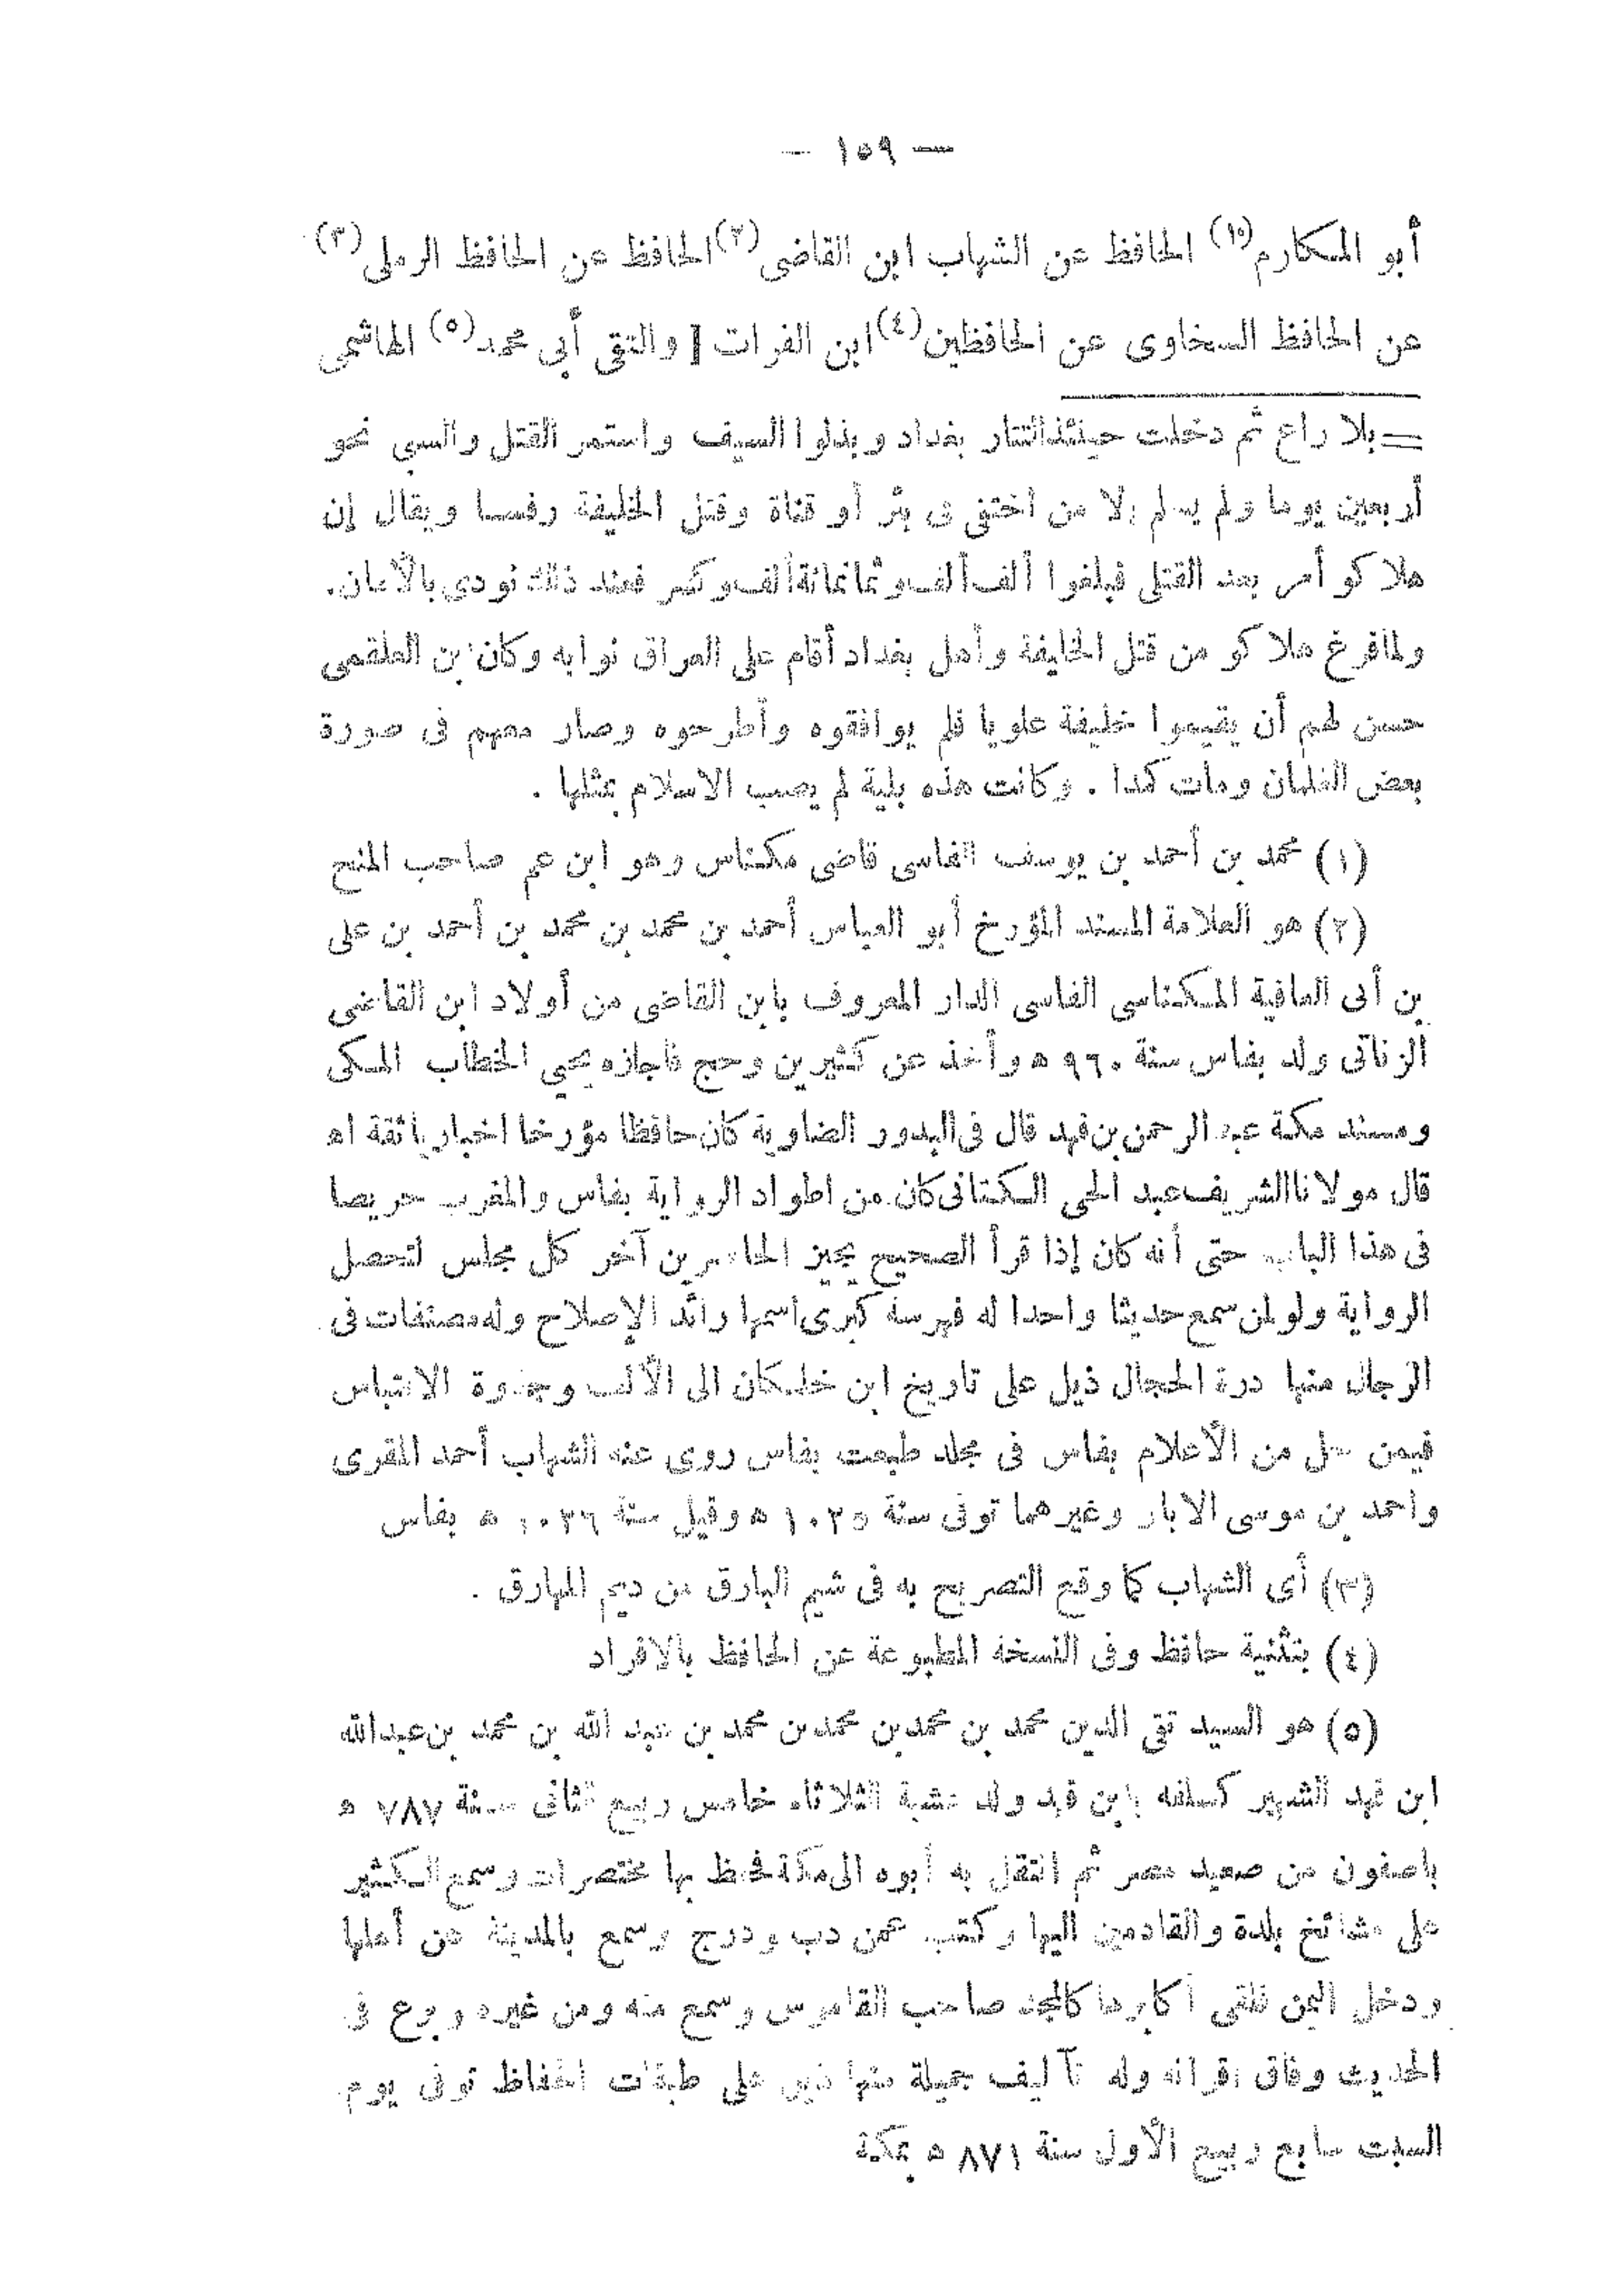 — ١٥٩ —
أبو المكارم(١) الحافظ عن الشهاب ابن القاضى(٢) الحافظ عن الحافظ الرملى(٣)
عن الحافظ السخاوى عن الحافظين(٤) ابن الفرات [ والتقى أبى محمد(٥) الهاشمى
=بلا راع ثم دخلت حينئذ التتار بغداد وبذلوا السيف واستمر القتل والسبى نحو
أربعين يوما ولم يسلم إلا من اختفى فى بئر أو قناة وقتل الخليفة رفسا ويقال إن
هلاكو أمر بعد القتلى فبلغوا ألف ألف وثمانمائة ألف وكسر فعند ذلك نودى بالأمان.
ولما فرغ هلاكو من قتل الخليفة وأهل بغداد أقام على العراق نوابه وكان ابن العلقمى
حسن لهم أن يقيموا خليفة علويا فلم يوافقوه وأطرحوه وصار معهم فى صورة
بعض الغلمان ومات كمدا . وكانت هذه بلية لم يصب الاسلام بمثلها .
(١) محمد بن أحمد بن يوسف الفاسى قاضى مكناس وهو ابن عم صاحب المنح
(٢) هو العلامة المسند المؤرخ أبو العباس أحمد بن محمد بن محمد بن أحمد بن على
بن أبى العافية المكناسى الفاسى الدار المعروف بابن القاضى من أولاد ابن القاضى
الزناتى ولد بفاس سنة ٩٦٠ ه وأخذ عن كثيرين وحج فأجازه يحيى الحطاب المكى
ومسند مكة عبد الرحمن بن فهد قال فى البدور الضاوية كان حافظا مؤرخا اخباريا ثقة اه
قال مولانا الشريف عبد الحى الكتانى كان من اطواد الرواية بفاس والمغرب حريصا
فى هذا الباب حتى أنه كان إذا قرأ الصحيح يجيز الحاضرين آخر كل مجلس لتحصل
الرواية ولو لمن سمع حديثا واحدا له فهرسة كبرى اسمها رائد الإصلاح وله مصنفات فى
الرجال منها درة الحجال ذيل على تاريخ ابن خلكان الى الألف وجذوة الاقتباس
فيمن حل من الأعلام بفاس فى مجلد طبعت بفاس روى عنه الشهاب أحمد المقرى
واحمد بن موسى الابار وغيرهما توفى سنة ١٠٢٥ ه وقيل سنة ١٠٢٦ ه بفاس
(٣) أى الشهاب كما وقع التصريح به فى شيم البارق من ديم المهارق .
(٤) بتثنية حافظ وفى النسخة المطبوعة عن الحافظ بالافراد
(٥) هو السيد تقى الدين محمد بن محمد بن محمد بن محمد بن عبد الله بن محمد بن عبدالله
ابن فهد الشهير كسلفه بابن فهد ولد عشية الثلاثاء خامس ربيع الثانى سنة ٧٨٧ ه
باصفون من صعيد مصر ثم انتقل به أبوه الى مكة فحفظ بها مختصرات وسمع الكثير
على مشائخ بلدة والقادمين اليها وكتب عمن دب ودرج وسمع بالمدينة من أهلها
ودخل اليمن فلقى أكابرها كالمجد صاحب القاموس وسمع منه ومن غيره وبرع فى
الحديث وفاق اقرانه وله تآليف جميلة منها ذيل على طبقات الحفاظ توفى يوم
السبت سابع ربيع الأول سنة ٨٧١ ه بمكة